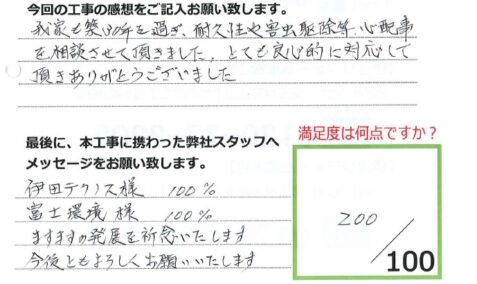 今回の工事の感想をご記入お願い致します。
我家も築30年を過ぎ、耐久性や害虫駆除等、心配事
を相談させて頂きました。とても良心的に対応して
頂きありがとうございました
最後に、本工事に携わった弊社スタッフへ
メッセージをお願い致します。
伊田テクノス様 100%
富士環境様 100%
ますますの発展を祈念いたします
今後ともよろしくお願いいたします
満足度は何点ですか?
200
100